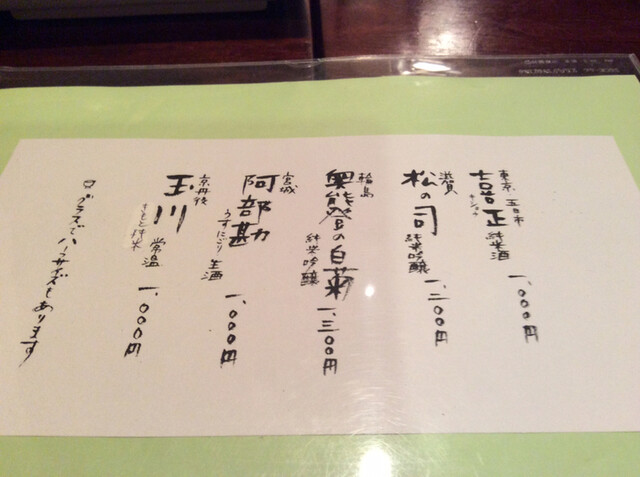 東京 五日市
喜正 純米酒 一、〇〇〇円
キショウ
滋賀
松の司 純米吟醸 一、二〇〇円
輪島
奥能登の白菊 純米吟醸 一、三〇〇円
宮城
阿部勘 うすにごり 生酒 一、〇〇〇円
京丹後
玉川 きもと純米 常温 一、〇〇〇円
グラスでハーフサイズもあります